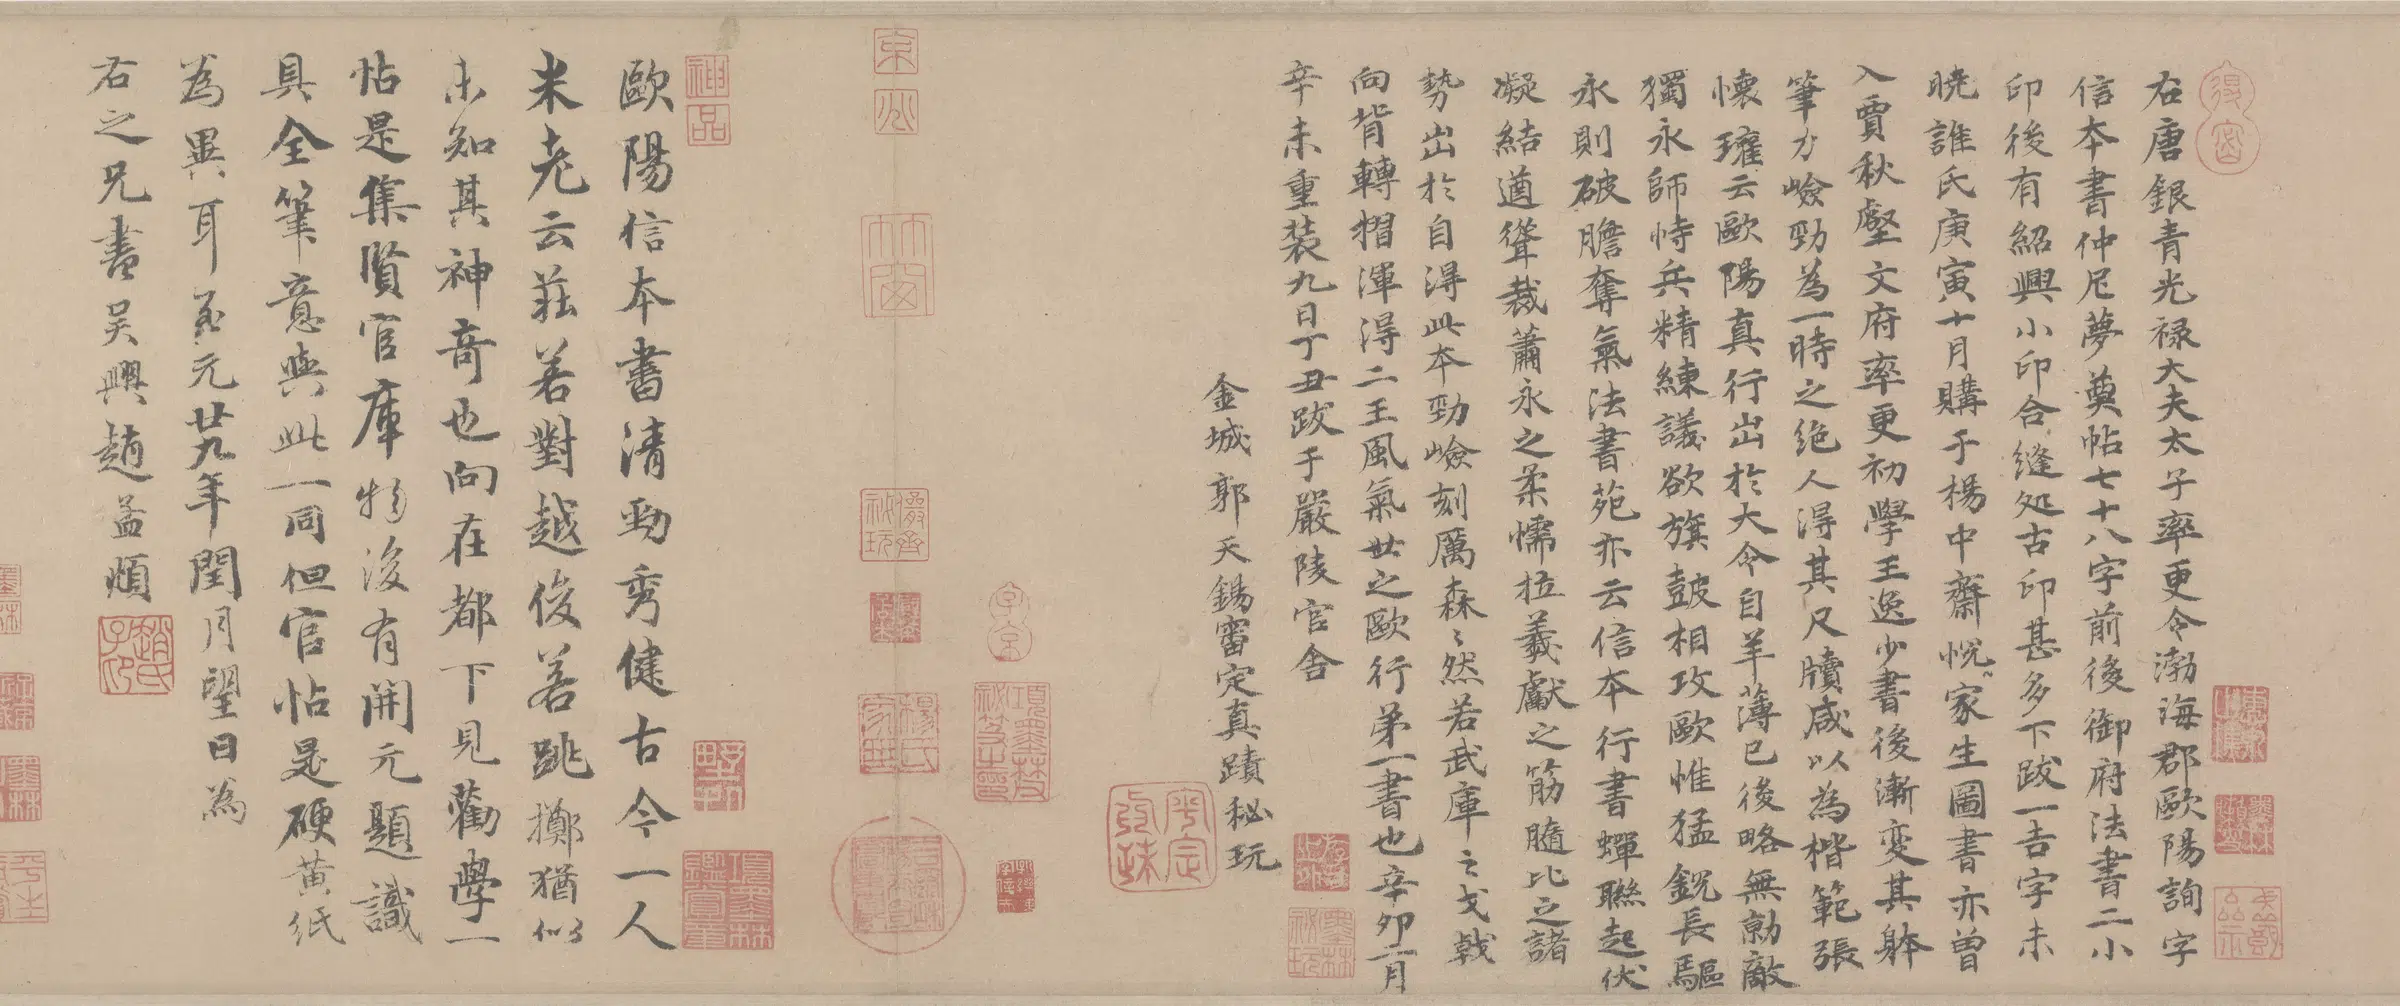 右唐銀青光禄大夫太子率更令渤海郡歐陽詢字
信本書仲尼夢奠帖七十八字前後御府法書二小
印後有紹興小印合縫處古印甚多下跋一吉字未
曉誰氏庚寅十月購于楊中齋家生圖書亦曾
入賈秋壑文府率更初學王逸少書後漸變其躰
筆力嶮勁為一時之絶人得其尺牘咸以為楷範張
懷瓘云歐陽真行出於大令自羊薄已後略無勍敵
獨永師恃兵精練議欲旗鼓相攻歐惟猛鋭長驅
永則破膽奪氣法書苑亦云信本行書蟬聯起伏
凝結遒聳裁蕭永之柔懦拉羲獻之筋髓比之諸
勢出於自得此本勁嶮刻厲森〻然若武庫之戈戟
向背轉摺渾得二王風氣世之歐行第一書也辛卯二月
辛未重裝九日丁丑跋于嚴陵官舍
金城郭天錫審定真蹟秘玩
神品
歐陽信本書清勁秀健古今一人
米老云莊若對越俊若跳擲猶似
未知其神奇也向在都下見勸學一
帖是集賢官庫物後有開元題識
具全筆意與此一同但官帖是硬黃紙
為異耳至元廿九年閏月望日為
右之兄書吳興趙孟頫
趙氏子印